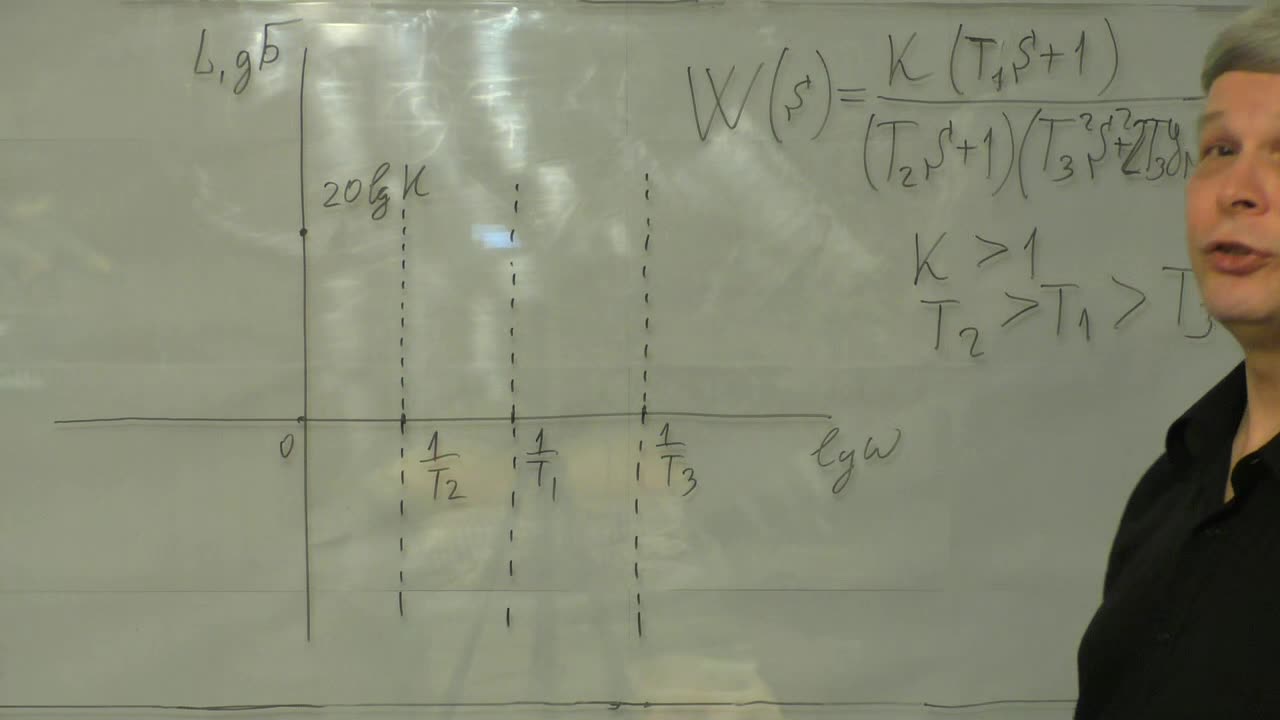 L, дБ
W(s) = K (T₁s+1)
(T₂s+1)(T₃²s²+2T₃ξ
20 lg K
K > 1
T₂ > T₁ > T₃
0
1/T₂ 1/T₁ 1/T₃
lg ω